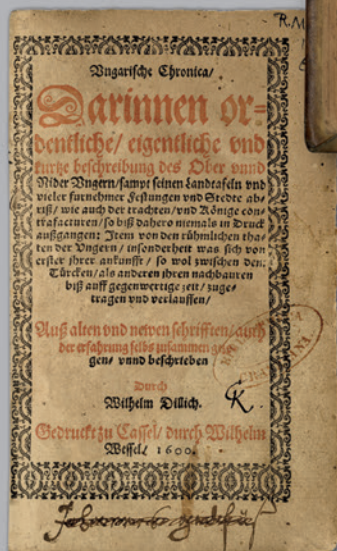 R.M
Vngarische Chronica/
Darinnen or-
dentliche/ eigentliche vnd
kurtze beschreibung des Ober vnnd
Nider Vngern/ sampt seinen Landtafeln vnd
vieler furnehmer Festungen vnd Stedte ab-
riß/ wie auch der trachten/ vnd Könige con-
trafacturen/ so biß dahero niemals in Druck
außgangen: Item von den rühmlichen tha-
ten der Vngern/ insonderheit was sich von
erster ihrer ankunfft/ so wol zwischen den
Türcken/ als anderen ihren nachbauren
biß auff gegenwertige zeit/ zuge-
tragen vnd verlauffen/
Auß alten vnd newen schrifften/ auch
der erfahrung selbs zusammen
gen/ vnnd beschrieben
Durch
Wilhelm Dillich.
Gedruckt zu Cassel/ durch Wilhelm
Wessel/ 1600.